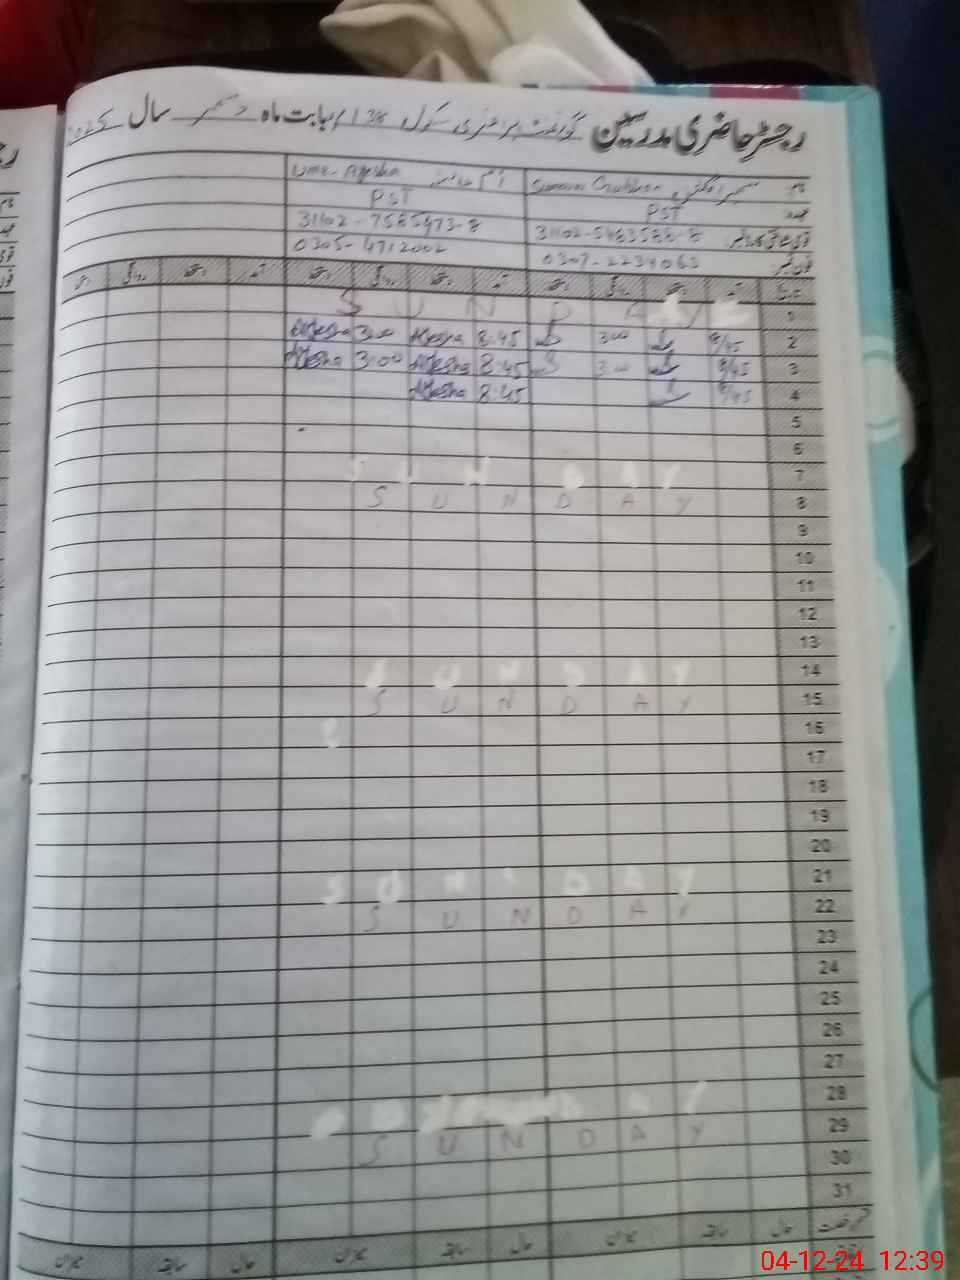 رجسٹر حاضری مدرسین گورنمنٹ پرائمری سکول 138/ بابت ماہ دسمبر سال
نام
Ume-Ayesha
عہدہ PST PST
قومی شناختی کارڈ نمبر 31102-5463588-8 31102-7565973-8
فون نمبر 0307-2234063 0305-4712002
تاریخ آمد دستخط روانگی دستخط آمد دستخط روانگی دستخط آمد دستخط روانگی دستخط
1 S U N D A Y
2 8/45 3:00 8:45 Ayesha 3:00 Ayesha
3 8/45 3:00 8:45 Ayesha 3:00 Ayesha
4 8/45 8:45 Ayesha
5
6
7 S U N D A Y
8 S U N D A Y
9
10
11
12
13
14 S U N D A Y
15 S U N D A Y
16
17
18
19
20
21 S U N D A Y
22 S U N D A Y
23
24
25
26
27
28
29 S U N D A Y
30
31
حال سابقہ میزان حال سابقہ میزان حال سابقہ میزان
04-12-24 12:39